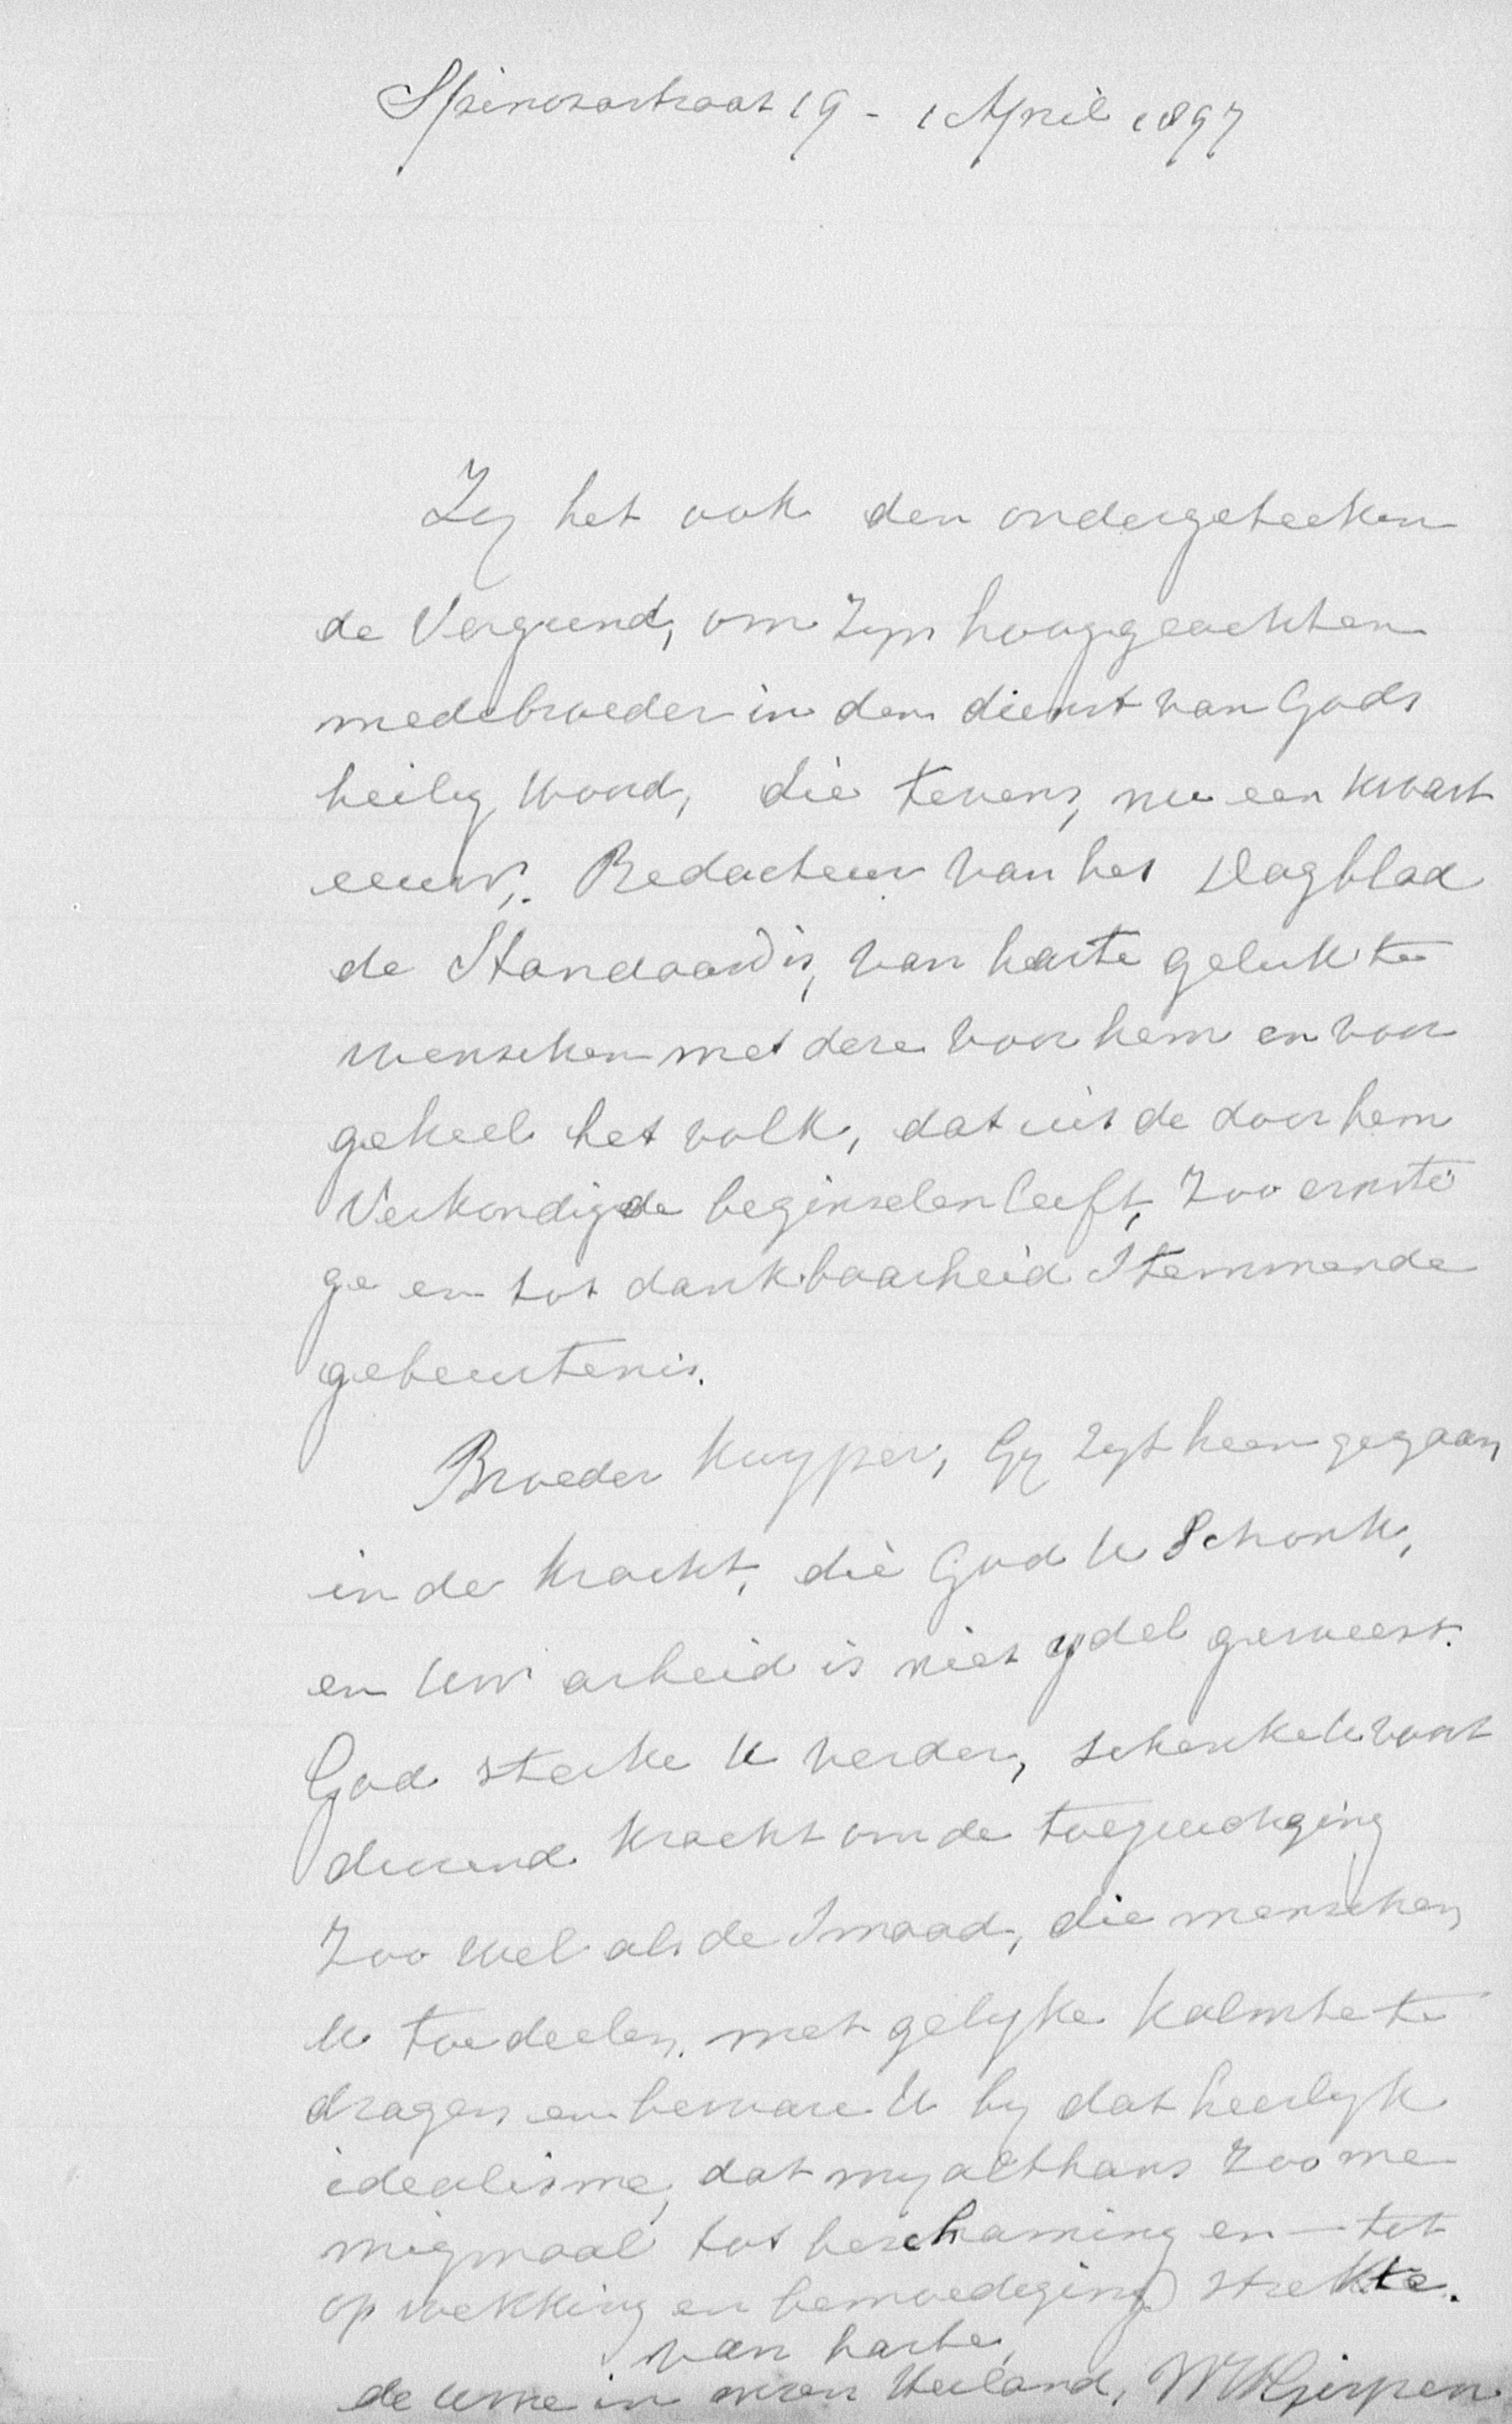 Spinozastraat 19 - 1 April 1897
Zy het ook den ondergeteeken
de Vergund, om Zyn hooggeachten
medebroeder in den dienst van Gods
heilig woord, die tevens, nu een kwart
eeuw, Redacteur van het Dagblad
de Standaard is, van harte geluk te
wenschen met deze voor hem en voor
geheel het volk, dat uit de door hem
Verkondigde beginselen leeft, Zoo ernsti
ge en tot dankbaarheid Stemmende
gebeurtenis.
Broeder Kuyper, Gy zyt heen gegaan,
in de kracht, die God U Schonk,
en Uw arbeid is niet ydel geweest.
God sterke U verder, schenke U voort
durend kracht om de toejuiching
Zoo wel als de Smaad, die menschen
U toedeelen, met gelyke kalmte te
dragen en beware U by dat heerlyk
idealisme, dat my althans Zoo me
nigmaal tot beschaming en — tot
opwekking en bemoediging strekte.
van harte,
de Uwe in onzen Heiland, W H Gispen.